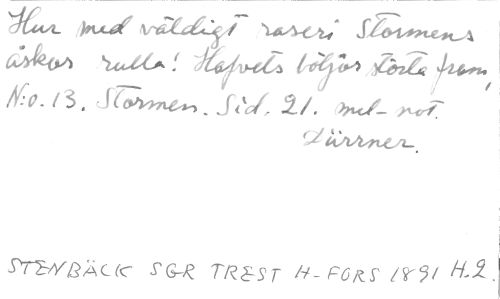 Hur med väldigt raseri Stormens
åskor rulla! Hafvets böljor störta fram,
N:o. 13. Stormen. Sid. 21. mel-not.
Dürrner.
STENBÄCK SGR TREST H-FORS 1891 H.2.